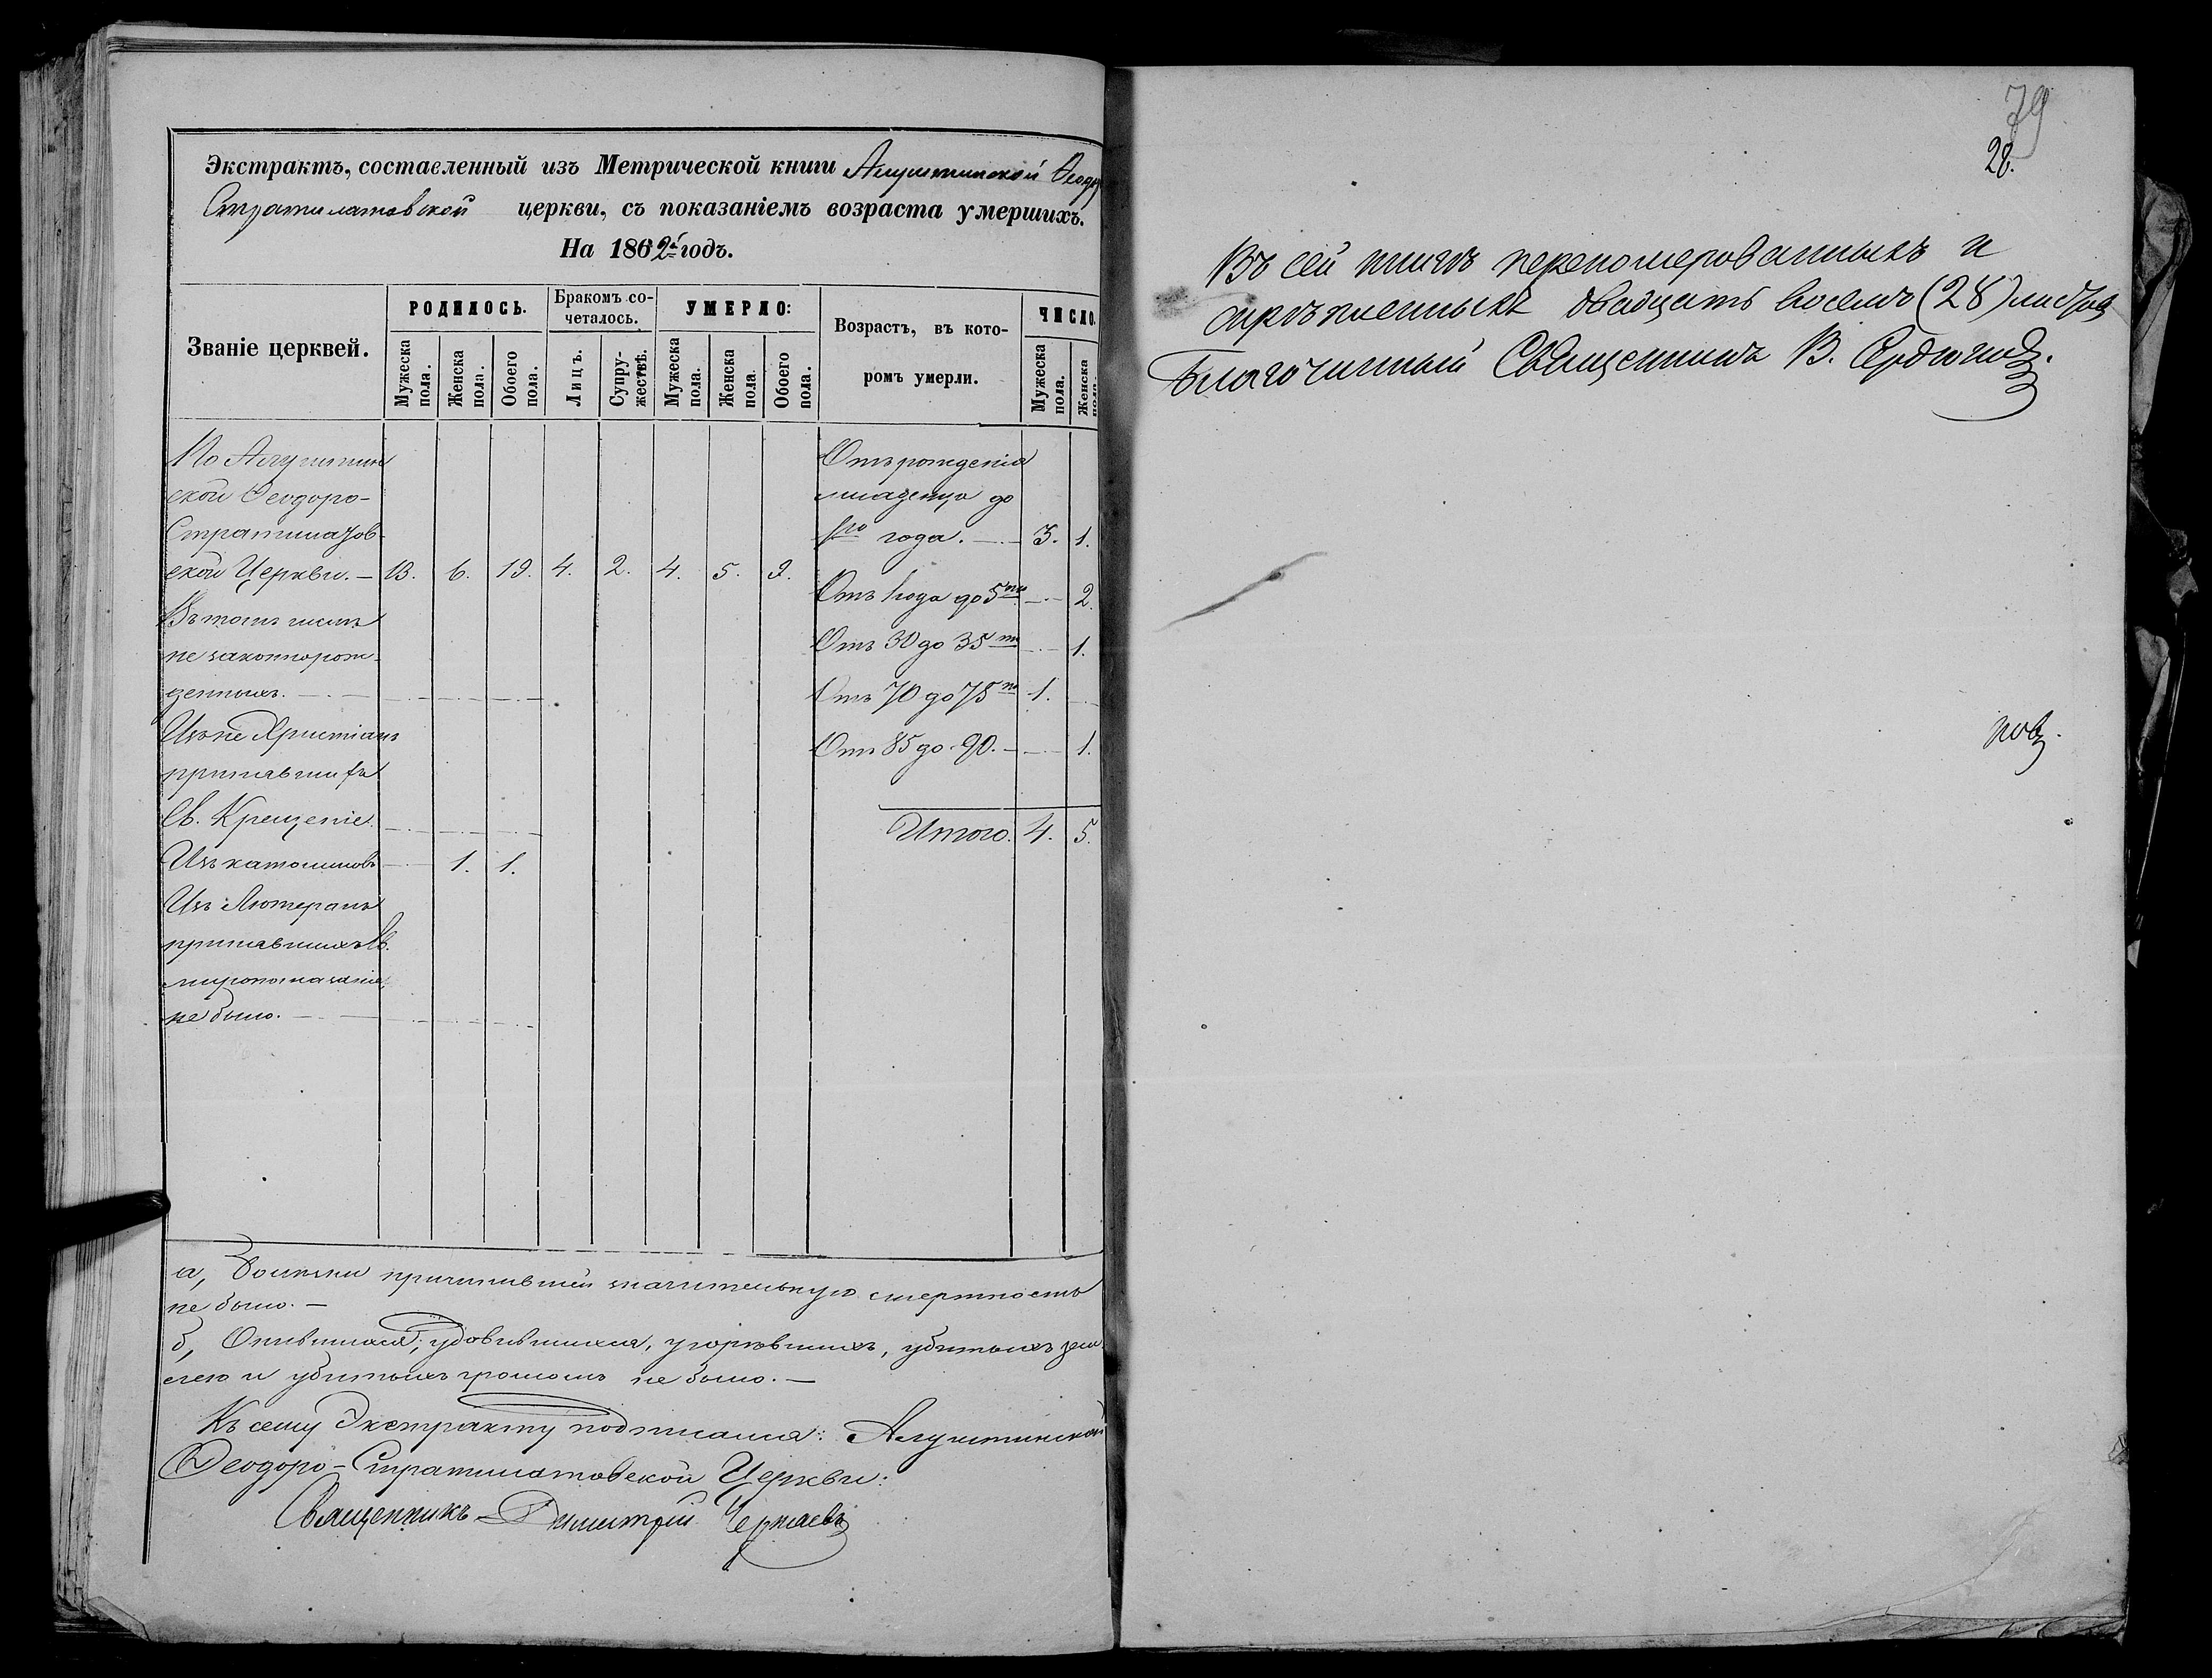 Экстрактъ, составленный изъ Метрической книги Алуштинской Ѳеодоро
Стратилатовской церкви, съ показаніемъ возраста умершихъ.
На 1862й годъ.
Званіе церквей.
РОДИЛОСЬ.
Бракомъ сочеталось.
УМЕРЛО:
Возрастъ, въ которомъ умерли.
ЧИСЛО.
Мужеска пола. Женска пола. Обоего пола. Лицъ. Супружествъ. Мужеска пола. Женска пола. Обоего пола. Мужеска пола. Женска пола.
По Алуштин
ской Ѳеодоро-
Стратилатов-
ской Церкви. — 13. 6. 19. 4. 2. 4. 5. 9.
Въ томъ числѣ
незаконнорож-
денныхъ. —
Изъ не Христіанъ
принявшихъ
Св. Крещеніе.
Изъ католиковъ — 1. 1.
Изъ Лютеранъ
принявшихъ Св.
миропомазаніе,
не было. —
Отъ рожденія
младенца до
1го года. — 3. 1.
Отъ 1 года до 5ти — 2.
Отъ 30 до 35ти — 1.
Отъ 70 до 75ти 1. —
Отъ 85 до 90. — 1.
Итого. 4. 5.
а, Болѣзни причинившей значительную смертность
не было. —
б, Опившихся, удавившихся, угорѣвшихъ, убитыхъ зем
лею и убитыхъ громомъ не было. —
Къ сему Экстракту подписался: Алуштинской
Ѳеодоро-Стратилатовской Церкви:
Священникъ Димитрій Чернаевъ
79
28.
Въ сей книгѣ перенумерованныхъ и
скрѣпленныхъ двадцать восемь (28) листовъ
Благочинный Священникъ В.